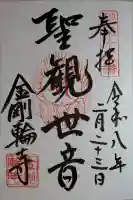 奉拝
令和八年
二月二十三日
聖観世音
金剛輪寺